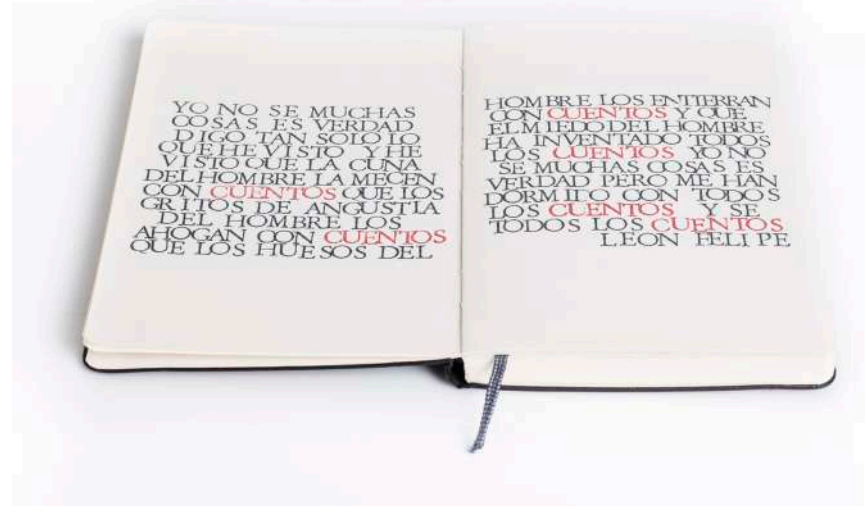 YO NO SE MUCHAS
COSAS ES VERDAD
DIGO TAN SOLO LO
QUE HE VISTO Y HE
VISTO QUE LA CUNA
DEL HOMBRE LA MECEN
CON CUENTOS QUE LOS
GRITOS DE ANGUSTIA
DEL HOMBRE LOS
AHOGAN CON CUENTOS
QUE LOS HUESOS DEL
HOMBRE LOS ENTIERRAN
CON CUENTOS Y QUE
EL MIEDO DEL HOMBRE
HA INVENTADO TODOS
LOS CUENTOS YO NO
SE MUCHAS COSAS ES
VERDAD PERO ME HAN
DORMIDO CON TODOS
LOS CUENTOS Y SE
TODOS LOS CUENTOS
LEON FELIPE